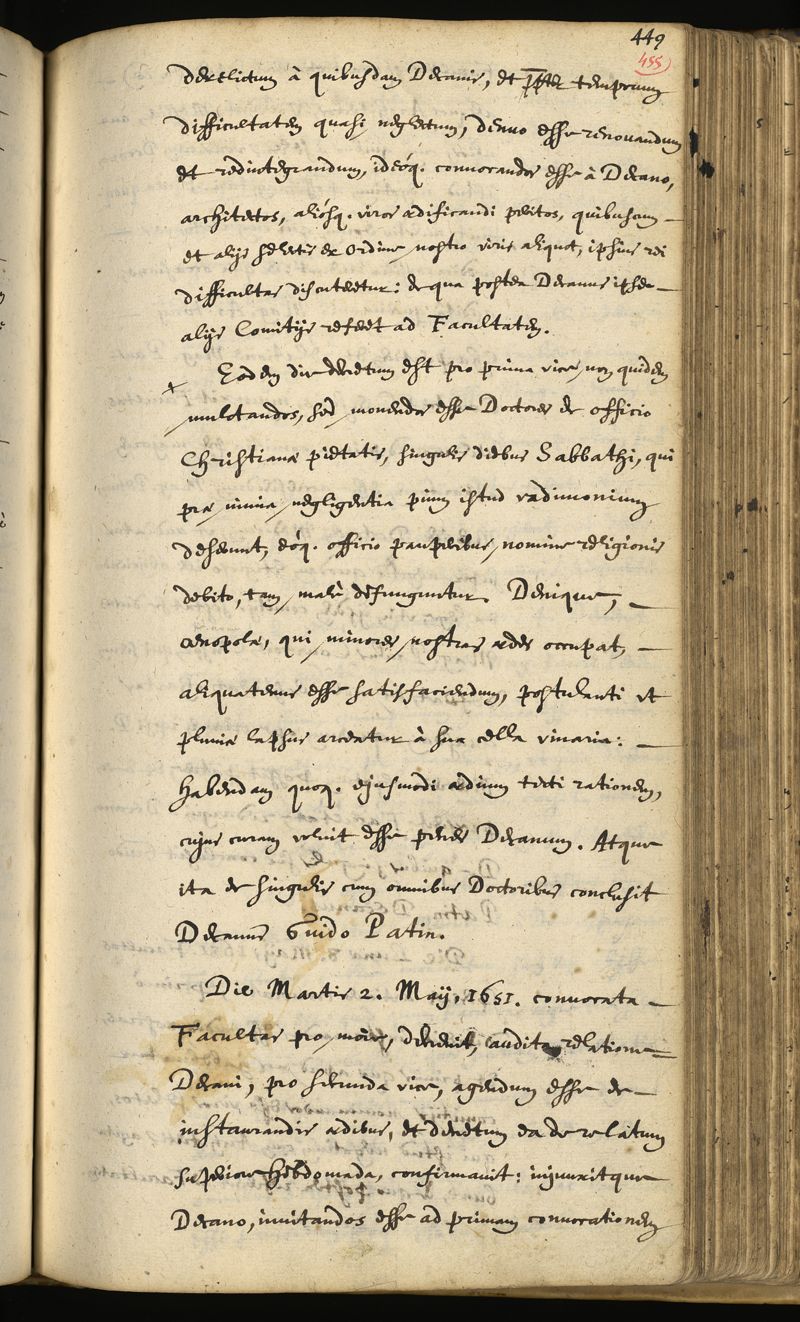 449
455
derelictum à quibusdam Decanis, et ppter temporum
difficultatem quasi neglectum, denuo esse renouandum
et redintegrandum, ideóq. conuocandos esse à Decano,
architectos, aliósq. viros ædificandi peritos, quibuscum
et alijs selectis ex Ordine nostro viris aliquot, ipsius rei
difficultas discuteretur: de qua postea Decanus ipse
alijs Comitijs referet ad Facultatem.
Eodem die decretum est pro prima vice, non quidem
mulctandos, sed monendos esse Doctores de officio
Christianæ pietatis, singulis diebus Sabbathi, qui
præ nimia negligentia pium istud vadimonium
deserunt, eóq. officio pauperibus, nomine religionis
debito, tam malè defunguntur. Denique,
œnopolæ, qui minores nostras ædes occupat,
aliquatenus esse satisfaciendum, postulanti vt
pluuiæ lapsus arceatur à sua cella vinaria:
habendam quoq. ejusmodi ædium tecti rationem,
cujus curam voluit esse penes Decanum. Atque
ita de singulis cum omnibus Doctoribus conclusit
Decanus Guido Patin.
Die Martis 2. Maij, 1651. conuocata
Facultas pro more, decreuit, audita relatione
Decani, pro secunda vice, agendum esse de
instaurandis ædibus, et decretum ea de re latum
superiore hebdomada, confirmauit: injunxitque
Decano, inuitandos esse ad primam conuocationem